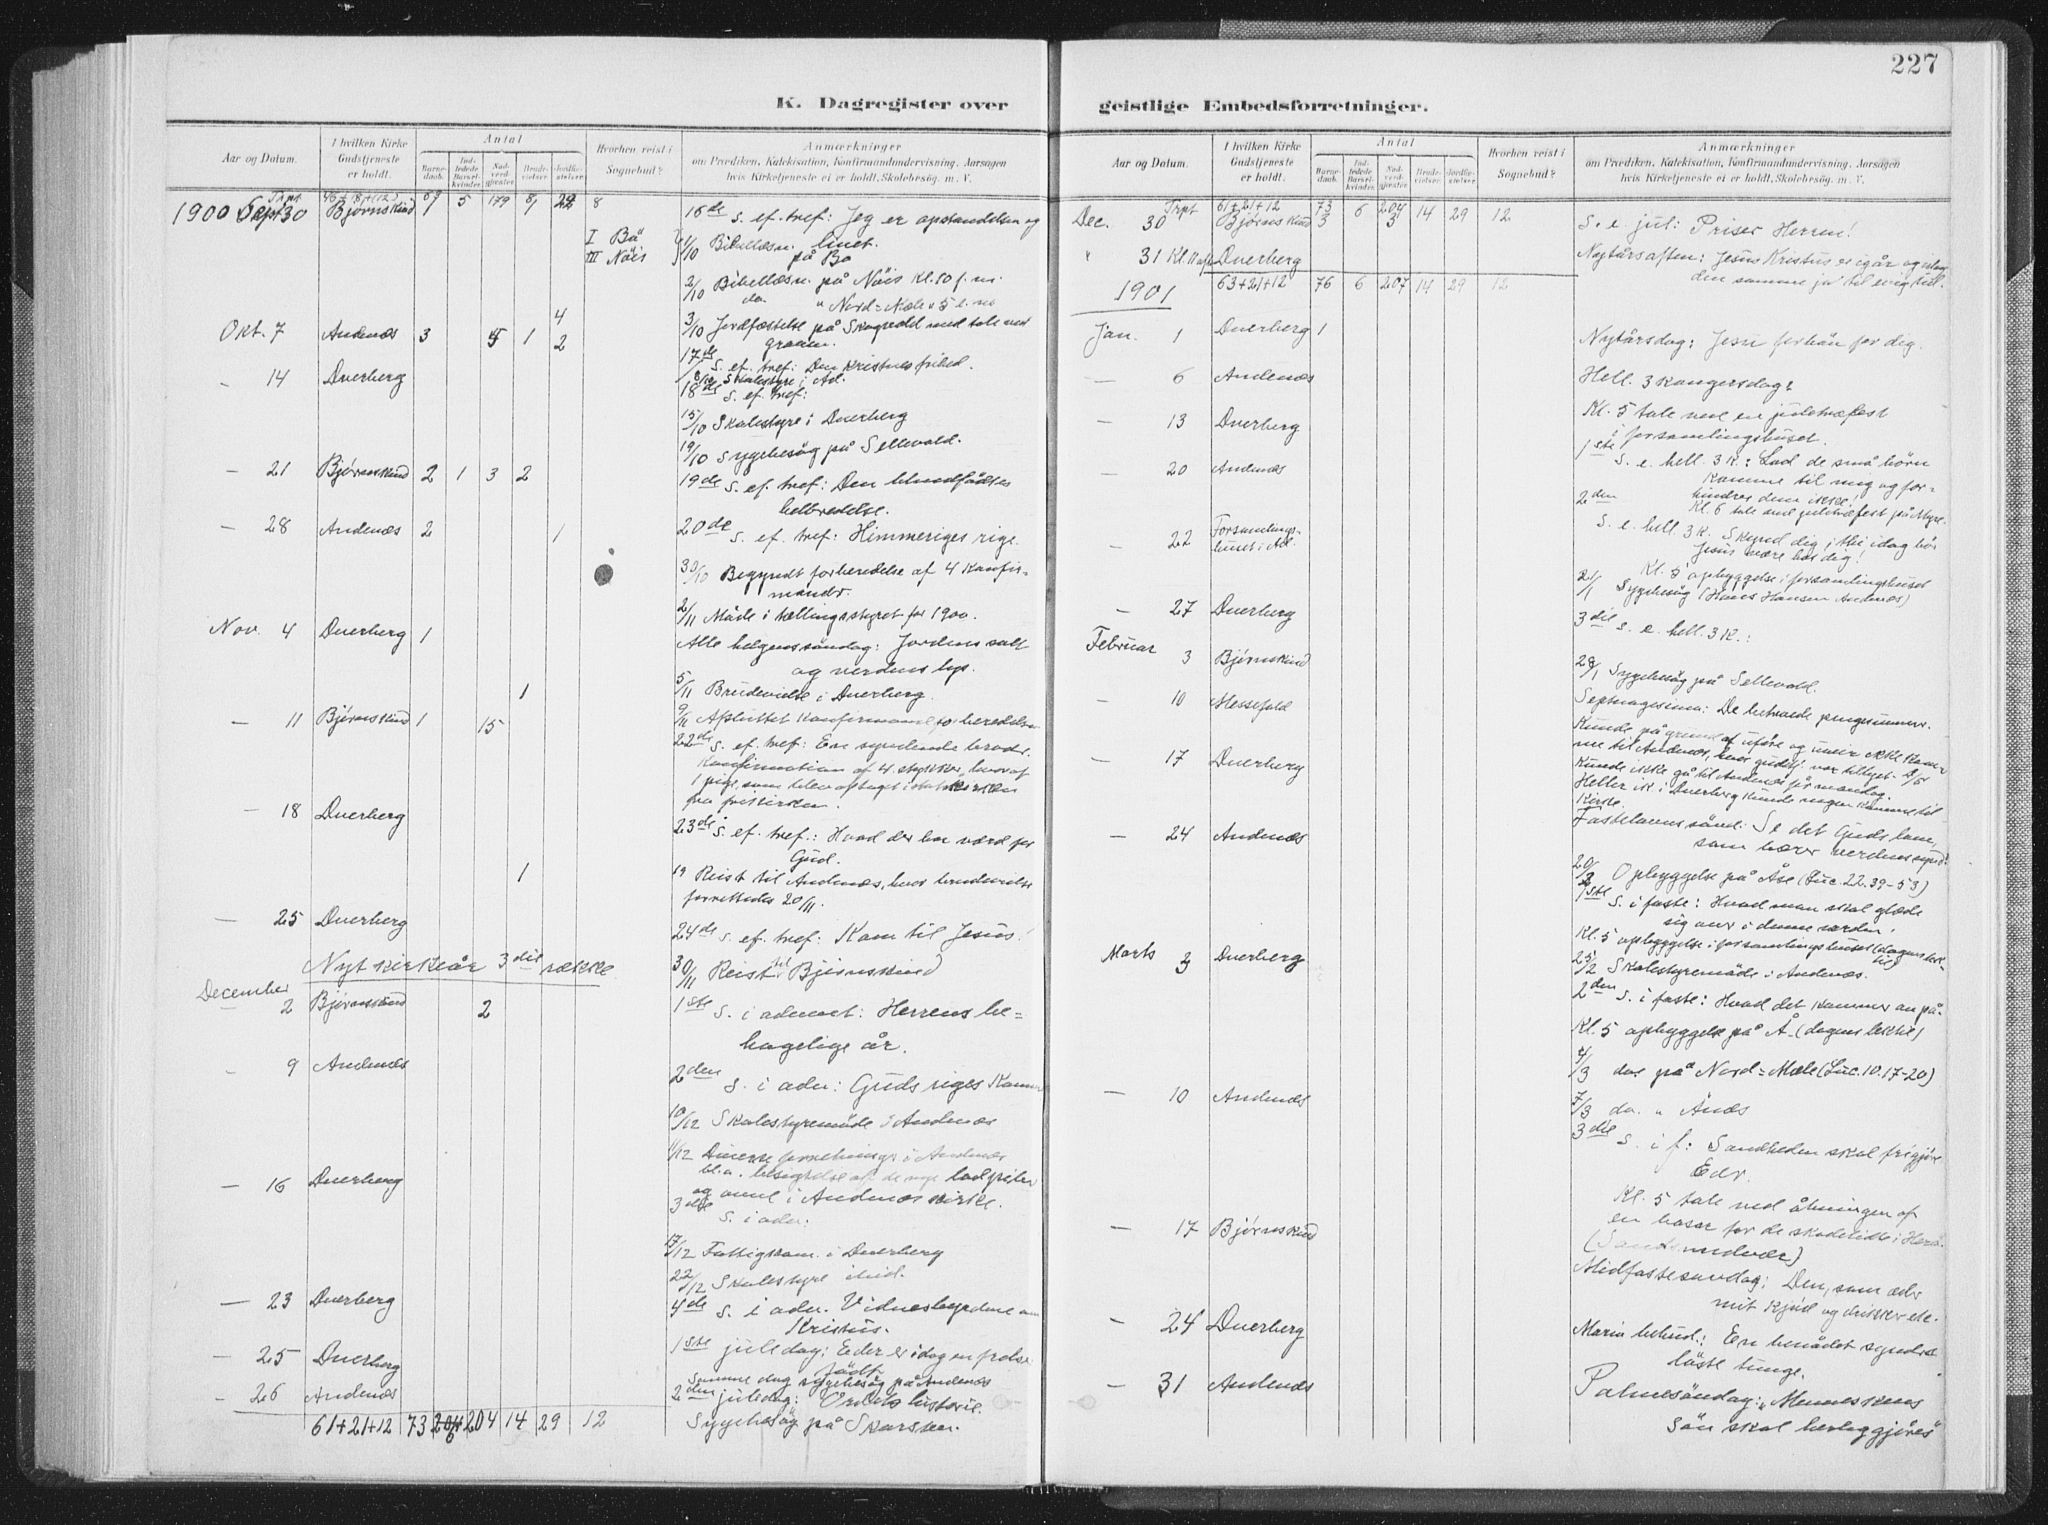 227
K. Dagregister over
geistlige Embedsforretninger.
Aar og Datum.
I hvilken Kirke Gudstjeneste er holdt.
Antal
Barne-daab.
Ind-ledede Barsel-kvinder.
Nad-verd-gjæster.
Brude-vielser
Jordfæ-stelser
Hvorhen reist i Sognebud?
Anmærkninger
om Prædiken, Katekisation, Konfirmandundervisning. Aarsagen
hvis Kirketjeneste ei er holdt. Skolebesøg. m. V.
Trpt 46+18+12 69
1900 Sept 30 Bjørnskind 1 5 179 8 22 8 16de s. ef. tref: Jeg er opstandelsen og
livet.
I Bø 1/10 Bibellæsn. på Bø
III Nöis
2/10 Bibellæsn. på Nöis Kl. 10 f. m.
do. " Nord=Mæle " 5 e. m.
4 3/10 Jordfæstelse på Skogvold med tale ved
graven.
Okt. 7 Andenæs 3 5 1 2 17de s. ef. tref: Den kristnes frihed.
8/10 Skolestyre i Ad.
- 14 Dverberg 18de s. ef. tref:
15/10 Skolestyre i Dverberg
19/10 Sygebesög på Sellevold.
- 21 Bjørnskind 2 1 3 2 19de s. ef. tref: Den blindfödtes
helbredelse.
- 28 Andenæs 2 1 20de s. ef. tref: Himmeriges rige.
30/10 Begyndt forberedelse af 4 konfir-
mander.
2/11 Möde i tællingsstyret for 1900.
Nov. 4 Dverberg 1 Alle helgenssöndag: Jordens salt
og verdens lys.
1 5/11 Brudevielse i Dverberg.
9/11 Afsluttet konfirmandforberedelse
- 11 Bjørnskind 1 15 22de s. ef. tref: En syndende broder.
Konfirmation af 4 stykker, hvoraf
1 pige, som blev optaget i statskirken
fra frikirken.
- 18 Dverberg 23de s. ef. tref.: Hvad der har værd for
Gud.
1 19 Reist til Andenæs, hvor brudevielse
forrettedes 20/11.
- 25 Dverberg 24de s. ef. tref: Kom til Jesus!
30/11 Reist til Bjørnskind
Nyt kirkeår 3die række
December
2 Bjørnskind 2 1ste s. i advent: Herrens be=
hagelige år.
" 9 Andenæs 2den s. i adv: Guds riges komme
10/12 Skolestyremöde i Andenæs
11/12 Diverse forretninger i Andenæs
bl. a. besigtelse af de nye
og ovne i Andenæs kirke.
- 16 Dverberg 3die s. i adv.
17/12 Fattigkom. i Dverberg
22/12 Skolestyre ibid.
- 23 Dverberg 4de s. i adv. Vidnesbyrdene om
Kristus.
- 25 Dverberg 1ste juledag: Eder er idag en frelser
födt.
Samme dag sygebesög på Andenæs
- 26 Andenæs 2den juledag: Ordets historie.
61+21+12 73 6 204 14 29 12 Sygebesög på Skarsten.
Aar og Datum.
I hvilken Kirke Gudstjeneste er holdt.
Antal
Barne-daab.
Ind-ledede Barsel-kvinder.
Nad-verd-gjæster
Brude-vielser
Jordfæ-stelser
Hvorhen reist i Sognebud?
Anmærkninger
om Prædiken, Katekisation, Konfirmandundervisning. Aarsagen
hvis Kirketjeneste ei er holdt. Skolebesøg. m. V.
Trpt 61+21+12 73 6 204 14 29 12
Dec. 30 Bjørnskind 3 3 S. e. jul: Priser Herren!
" 31 Kl. 11 aft Dverberg Nytårsaften: Jesus Kristus er igår og idag
den samme ja til evig tid.
63+21+12 76 6 207 14 29 12
1901
Jan. 1 Dverberg 1 Nytårsdag: Jesu forbön for dig.
- 6 Andenæs Hell. 3 kongersdag:
Kl. 5 tale ved en juletræfest
i forsamlingshuset.
- 13 Dverberg 1ste s. e. hell. 3 k.: Lad de små börn
komme til mig og for=
hindrer dem ikke!
Kl. 6 tale ved juletræfest på Myre.
- 20 Andenæs 2den s. e. hell. 3 k. Skynd dig, thi idag bör
Jesus være hos dig!
- 22 Forsamlings-
huset i Ad.
Kl. 5 opbyggelse i forsamlingshuset
21/1 Sygebesög (Hans Hansen Andenæs)
- 27 Dverberg 3die s. e. hell. 3 k.:
28/1 Sygebesög på Sellevold.
Februar 3 Bjørnskind Septuagesima: De betroede pengesummer.
- 10 Messefald Kunde på grund af uföre og uveir ikke kom-
me til Andenæs, hvor gudstj. var tillyst.
Kunde ikke gå til Andenæs för mandag.
Heller ik i Dverberg kunde nogen komme til
Kirke.
- 17 Dverberg Fastelavnssönd: Se det Guds lam,
som bærer verdens synd!
20/2 Opbyggelse på Åse (Luc. 22. 39-53)
- 24 Andenæs 1ste s. i faste: Hvad man skal glæde
sig over i denne verden.
Kl. 5 opbyggelse i forsamlingshuset (dagens lek-
tie)
25/2 Skolestyremöde i Andenæs.
Marts 3 Dverberg 2den s. i faste: Hvad det kommer an på.
Kl. 5 opbyggelse på Å (dagens lektie)
4/3 do. på Nord=Mæle (Luc. 10. 17-20)
7/3 do. " Ånæs
- 10 Andenæs 3die s. i f: Sandheden skal frigjöre
Eder.
Kl. 5 tale ved åbningen af
en basar for de skadelidte i Herö.
(Sandsundvær)
- 17 Bjørnskind Midfastesöndag: Den, som æder
mit kjöd og drikker etc.
- 24 Dverberg Mariæ bebud.: En benådet synders
löste tunge.
- 31 Andenæs Palmesöndag: "Menneskens
sön skal herliggjöres"